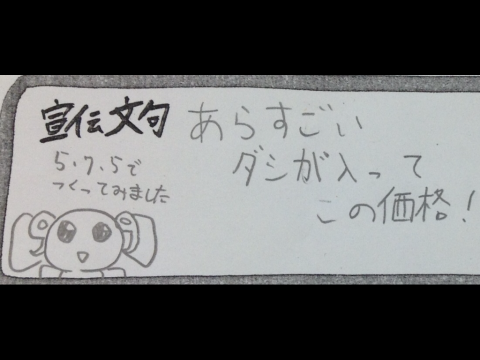 宣伝文句
5.7.5で
つくってみました
あらすごい
ダシが入って
この価格!